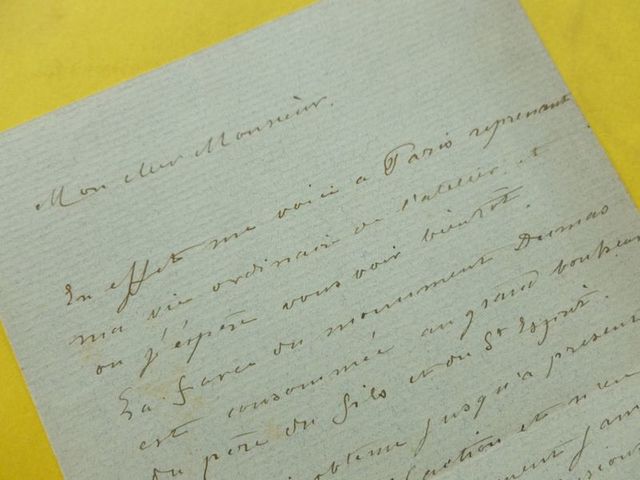 Mon cher Monsieur,
En effet me voici a Paris reprenant
ma vie ordinaire de l'atelier et
ou j'éspère vous voir bientôt.
La farce du monument Dumas
est consommée au grand bonheur
du père du fils et du St Esprit.
obtenu jusqu'a présent
faction et n'eu